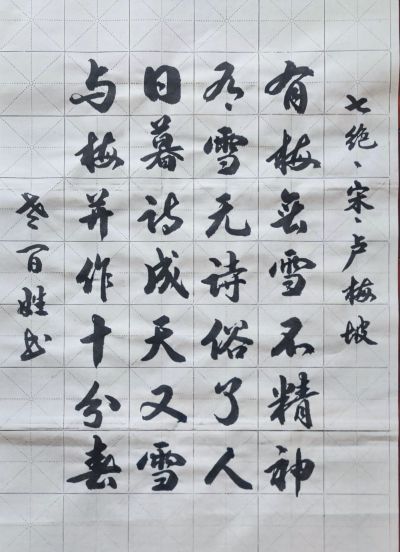 七绝、宋、卢梅坡
有梅无雪不精神
有雪无诗俗了人
日暮诗成天又雪
与梅并作十分春
老百姓书